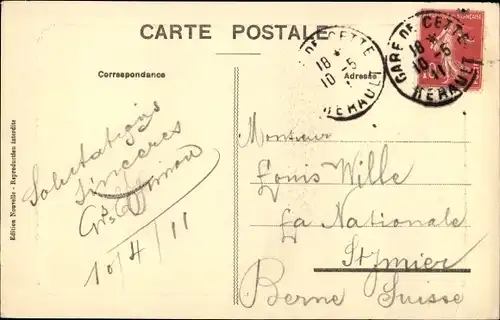 CARTE POSTALE
Correspondance
Adresse
GARE DE CETTE
18 *
10-5
11
HERAULT
DE CETTE
18 *
10-5
HERAULT
10
Edition Nouvelle - Reproduction interdite
Salutations
Sinceres
10/4/11
Monsieur
Louis Wille
La Nationale
St Imier
Berne Suisse